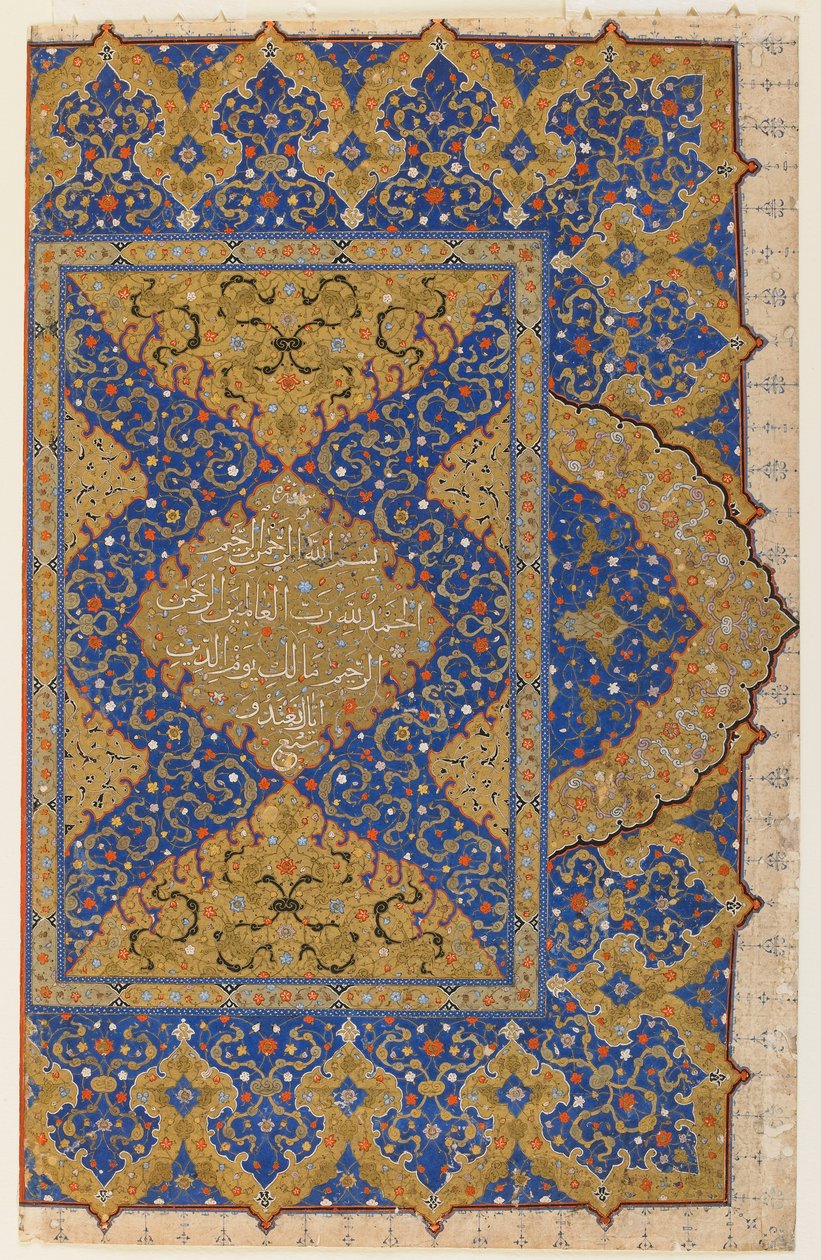 سورة
بِسْمِ اللَّهِ الرَّحْمٰنِ الرَّحِيمِ
الْحَمْدُ لِلَّهِ رَبِّ الْعَالَمِينَ الرَّحْمٰنِ
الرَّحِيمِ مَالِكِ يَوْمِ الدِّينِ
اِيَّاكَ نَعْبُدُ وَ
سبع